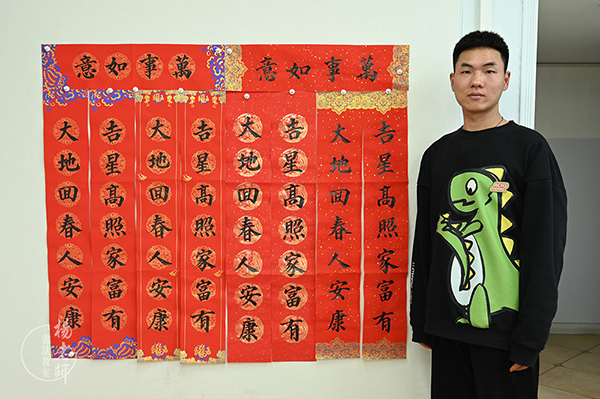 萬事如意
萬事如意
吉星高照家富有
大地回春人安康
吉星高照家富有
大地回春人安康
吉星高照家富有
大地回春人安康
吉星高照家富有
大地回春人安康